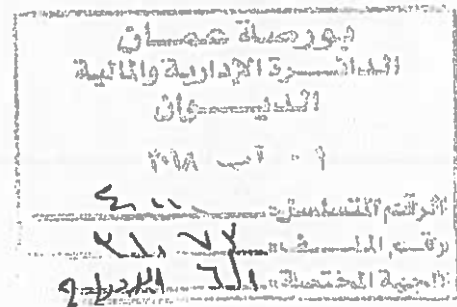 بورصة عمان
الدائرة الإدارية والمالية
الديوان
٠٩ آب ٢٠١٨
الرقم المتسلسل: ٤٠١١
رقم الملف:
الجهة المختصة: